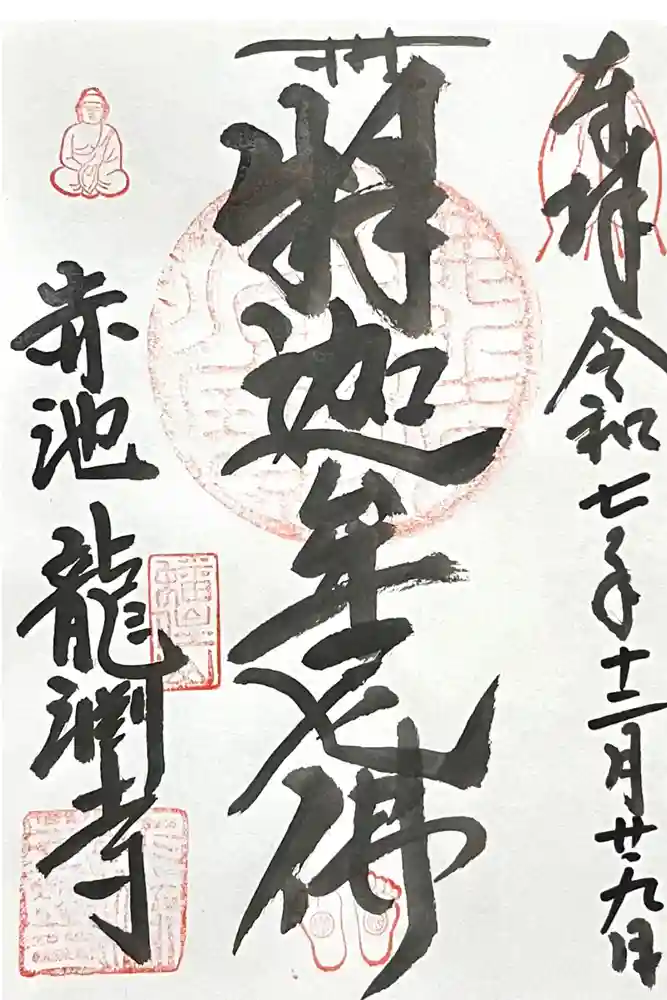 奉拝 令和七年十二月廿九日
釋迦牟尼佛
赤池 龍淵寺